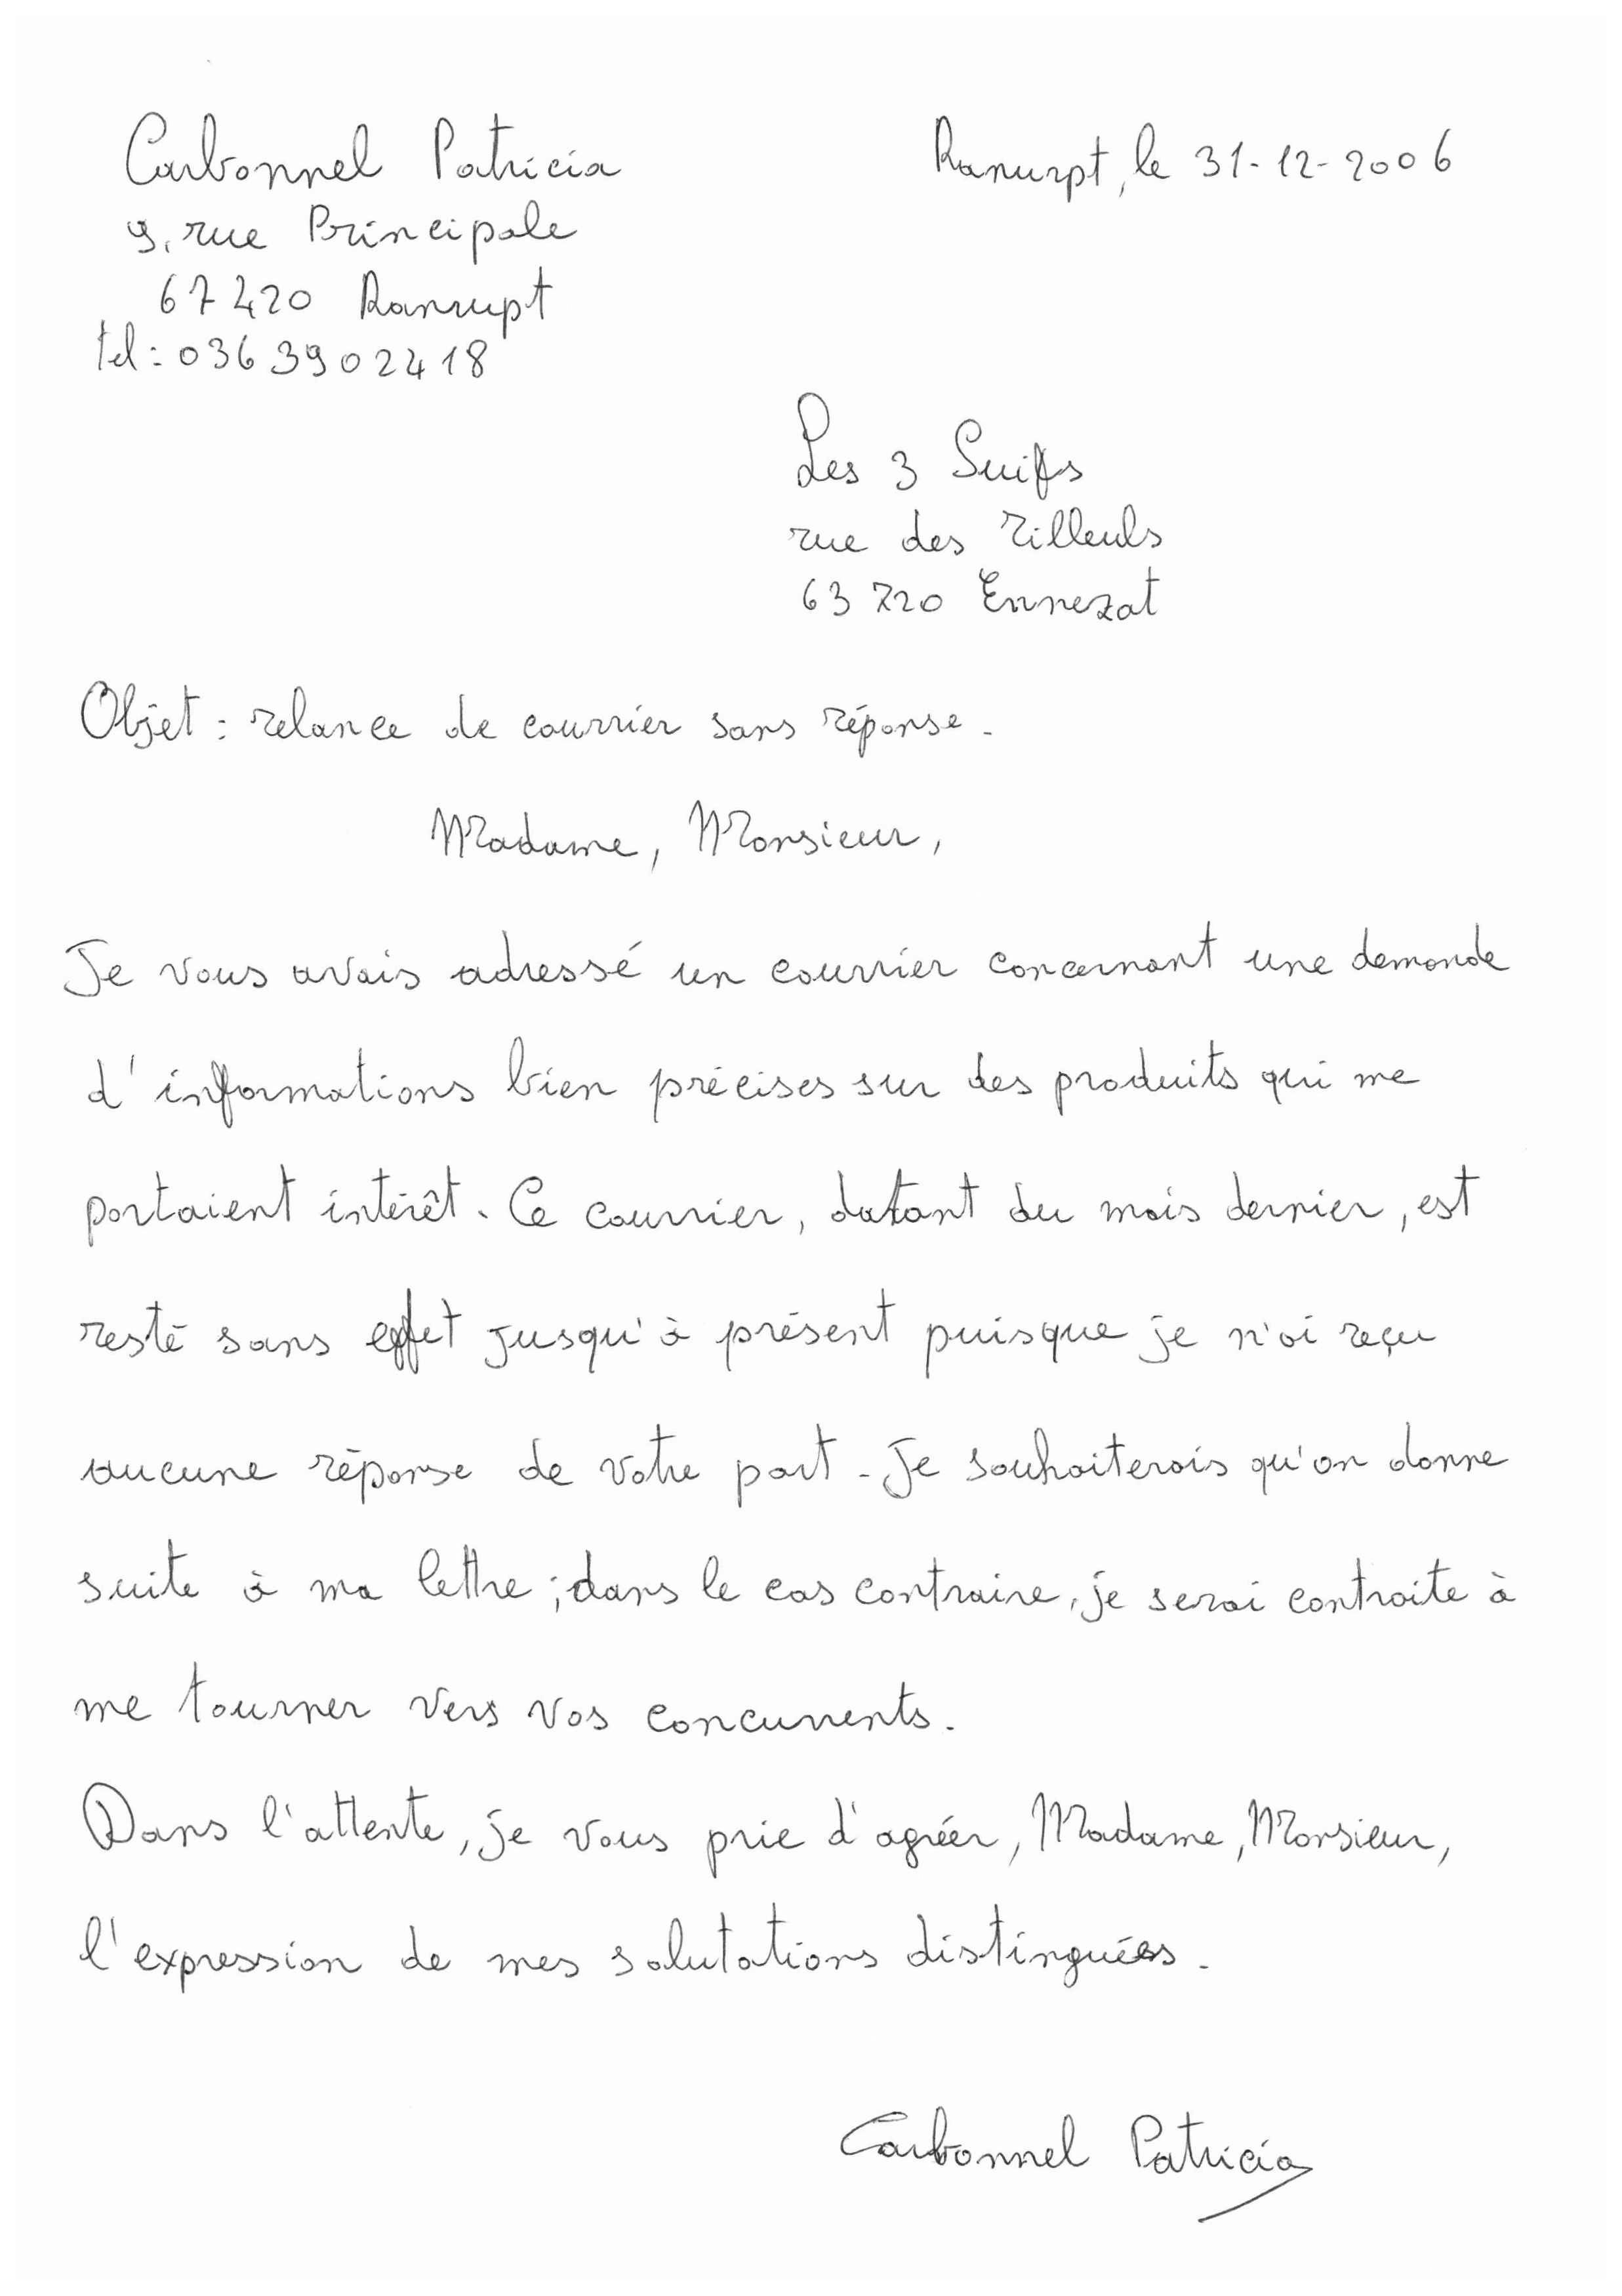 Carbonnel Patricia
Ranurpt, le 31-12-2006
9, rue Principale
67420 Ranrupt
tel : 0363902418
Les 3 Suifs
rue des Tilleuls
63720 Ennezat
Objet : relance de courrier sans réponse.
Madame, Monsieur,
Je vous avais adressé un courrier concernant une demande
d'informations bien précises sur des produits qui me
portaient intérêt. Ce courrier, datant du mois dernier, est
resté sans effet jusqu'à présent puisque je n'ai reçu
aucune réponse de votre part. Je souhaiterais qu'on donne
suite à ma lettre ; dans le cas contraire, je serai contraite à
me tourner vers vos concurrents.
Dans l'attente, je vous prie d'agréer, Madame, Monsieur,
l'expression de mes salutations distinguées.
Carbonnel Patricia